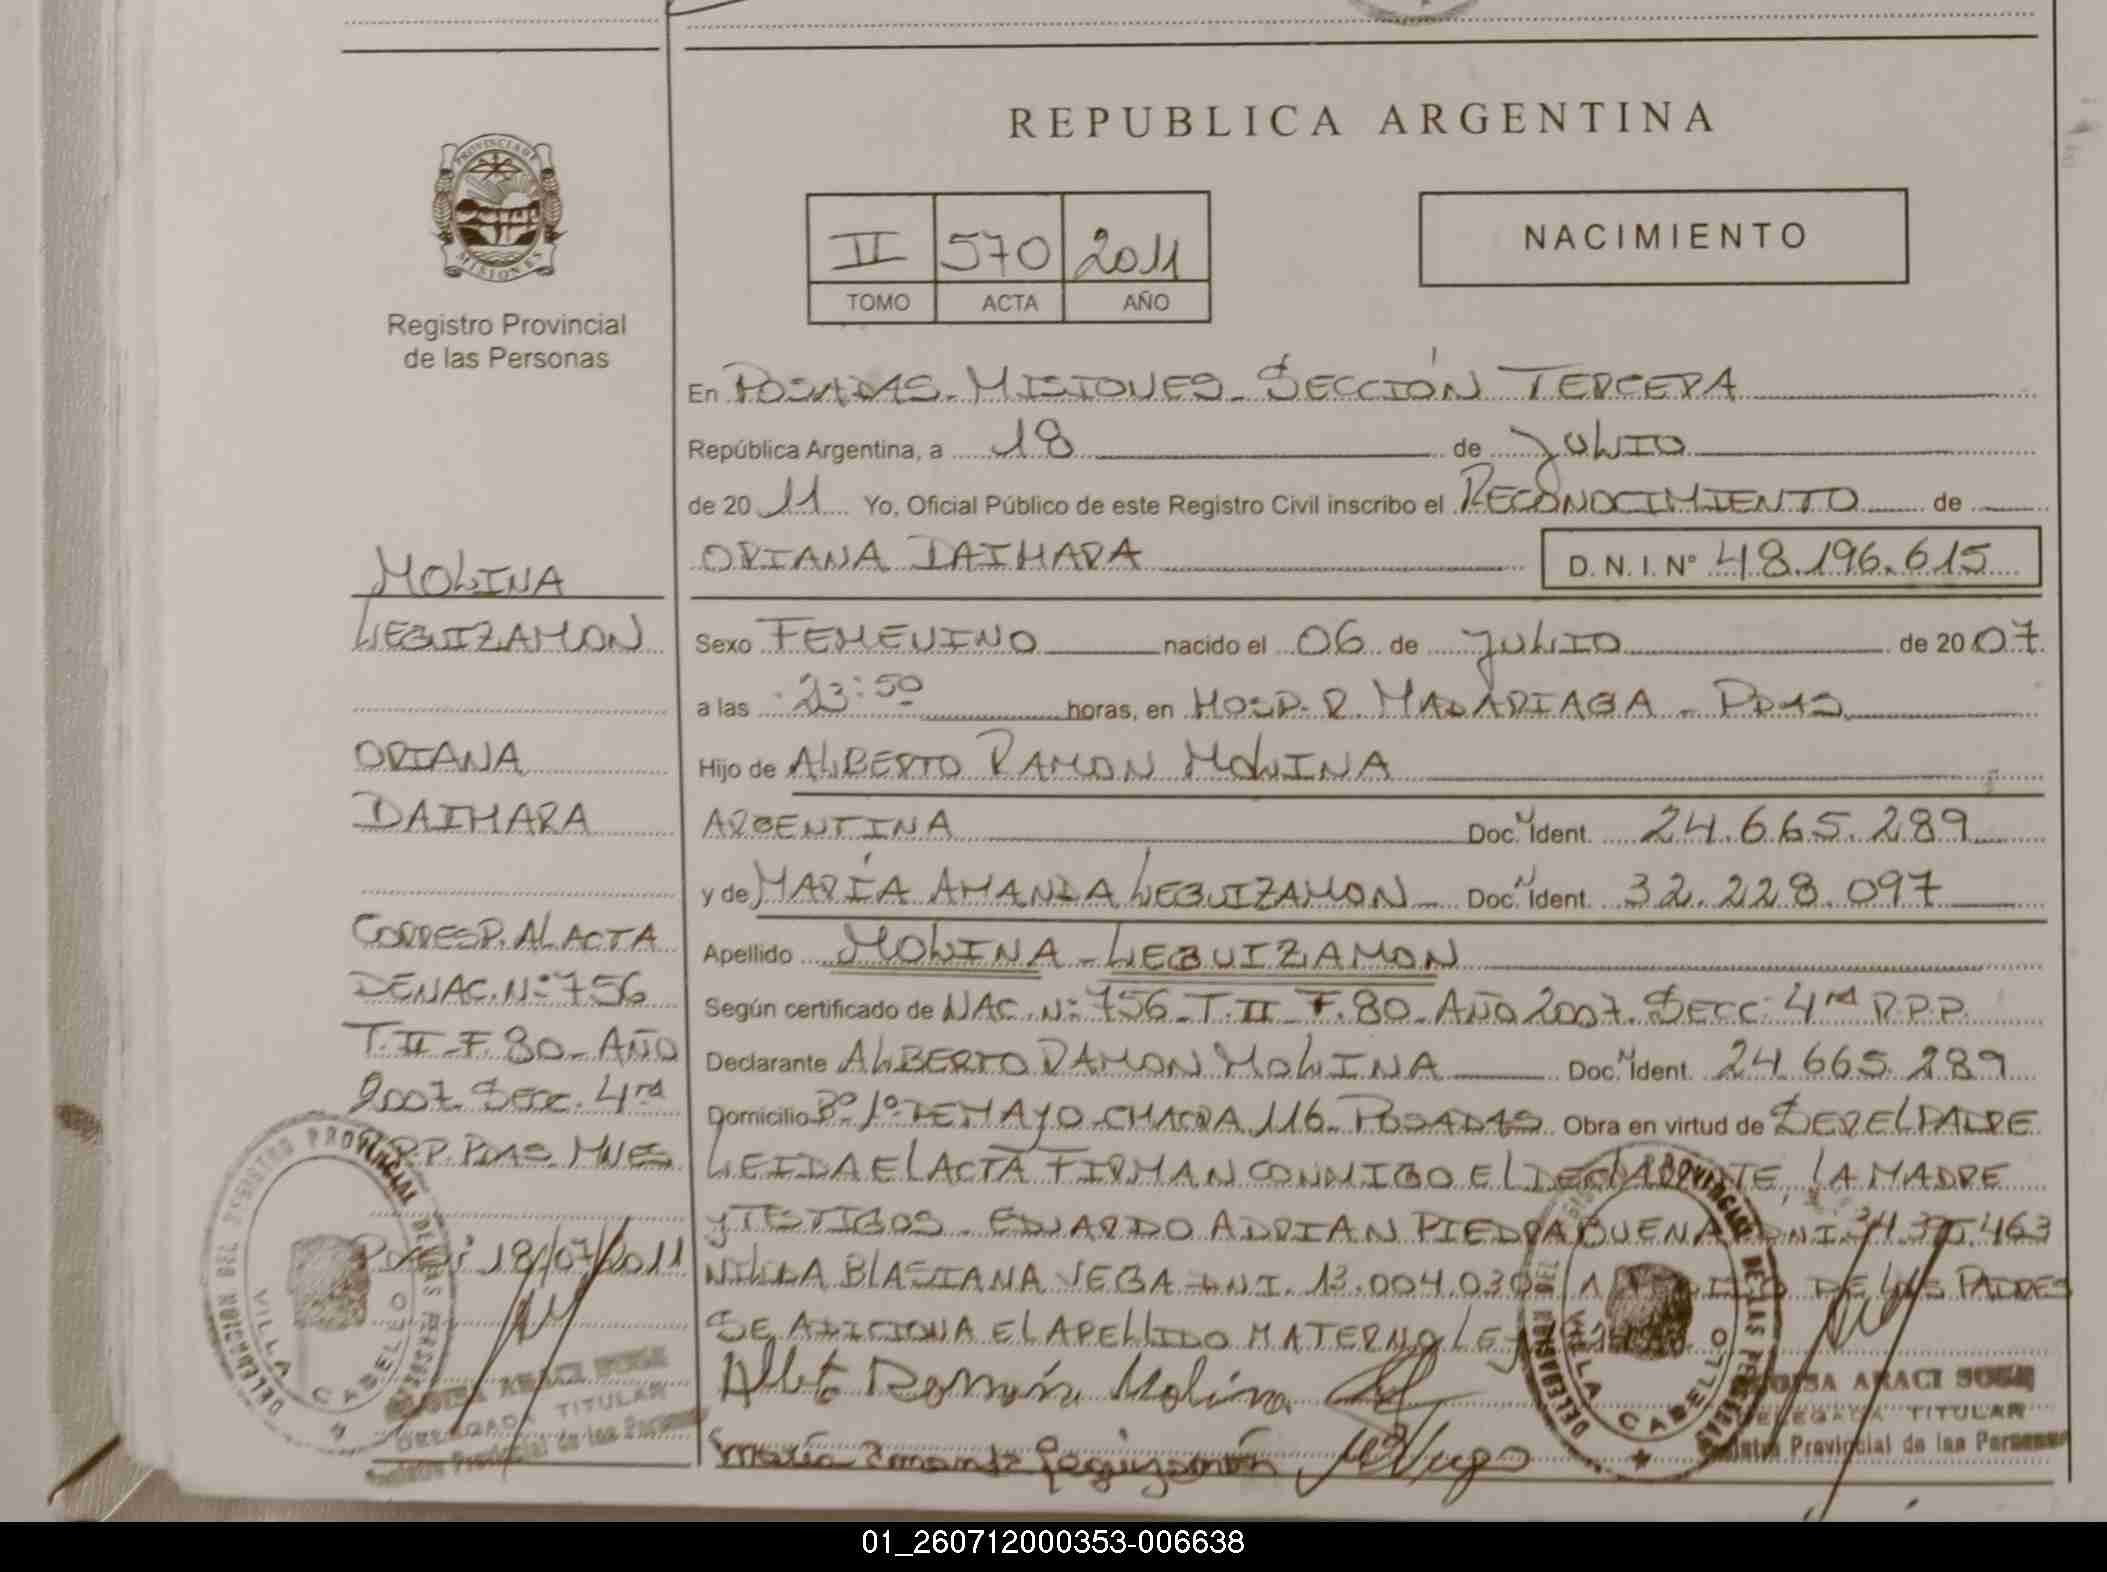 REPUBLICA ARGENTINA
PROVINCIA DE
MISIONES
Registro Provincial
de las Personas
II 570 2011
TOMO ACTA AÑO
NACIMIENTO
En POSADAS-MISIONES-SECCIÓN TERCERA
República Argentina, a 18 de JULIO
de 2011 Yo, Oficial Público de este Registro Civil inscribo el RECONOCIMIENTO de
ORIANA DAIMARA D.N.I. N° 48.196.615
Sexo FEMENINO nacido el 06 de JULIO de 2007
a las 23:50 horas, en HOSP. R. MADARIAGA - PDAS
Hijo de ALBERTO RAMON MOLINA
ARGENTINA Doc. N Ident. 24.665.289
y de MARÍA AMANDA LEGUIZAMON Doc. N Ident. 32.228.097
Apellido MOLINA - LEGUIZAMON
Según certificado de NAC. N: 756 - T. II - F. 80 - AÑO 2007. SECC: 4ra R.P.P.
Declarante ALBERTO RAMON MOLINA Doc. N Ident. 24.665.289
Domicilio Bº 1º DE MAYO - CHACRA 116 - POSADAS Obra en virtud de SER EL PADRE
LEIDA EL ACTA FIRMAN CONMIGO EL DECLARANTE, LA MADRE
y TESTIGOS - EDUARDO ADRIAN PIEDRABUENA DNI. 463
NILDA BLASIANA VEGA DNI. 13.004.030 DE LOS PADRES
SE ADICIONA EL APELLIDO MATERNO LEY
Alberto Ramón Molina
María Amanda Leguizamón
MOLINA
LEGUIZAMON
ORIANA
DAIMARA
CORRESP. AL ACTA
DE NAC. N: 756
T. II - F. 80 - AÑO
2007. SECC. 4ra
R.P.P. PDAS. MNES
18/07/2011
DELEGACION DEL REGISTRO PROVINCIAL DE LAS PERSONAS
VILLA CABELLO
DELEGADA TITULAR
Registro Provincial de las Personas
DELEGACION DEL REGISTRO PROVINCIAL DE LAS PERSONAS
VILLA CABELLO
ARACI
DELEGADA TITULAR
Registro Provincial de las Personas
01_260712000353-006638